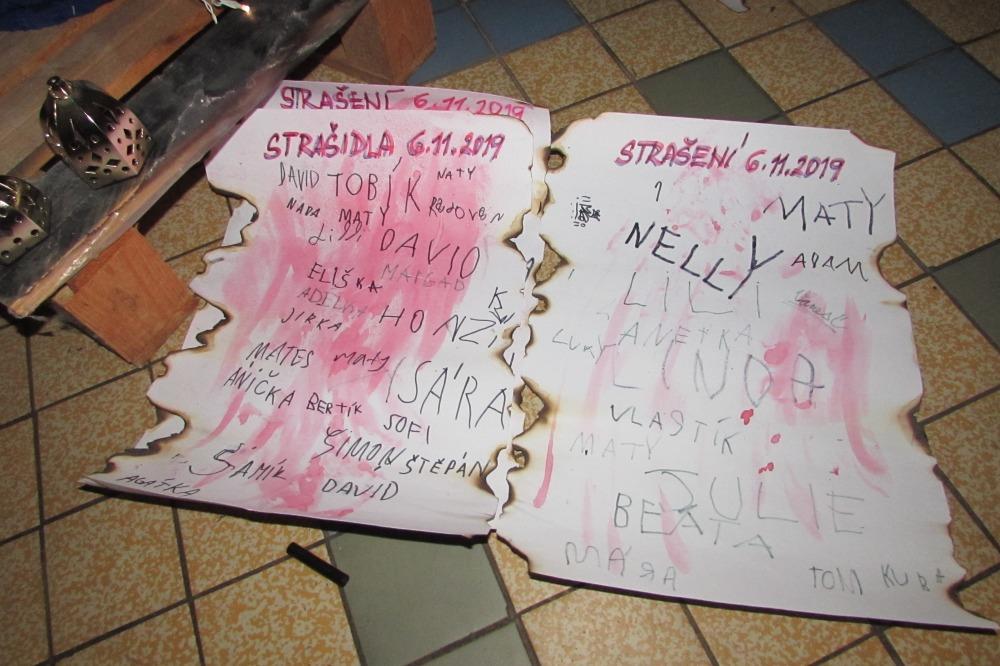 STRAŠENÍ 6.11.2019
STRAŠIDLA 6.11.2019
DAVID TOBÍK NATY
NAĎA MATY RADOVAN
Lilli DAVID
ELIŠKA MATGAD
ADÉLKA
JIRKA HONZÍK
MATES maty SÁRA
ANIČKA BERTÍK
SOFI
SAMÍK ŠIMON ŠTĚPÁN
AGÁTKA DAVID
STRAŠENÍ 6.11.2019
1
MATY
NELLY ADAM
LILI
LUKY ANETKA
LINDA
VLASTÍK
MATY
JULIE
BEATA
MÁRA
TOM KUBA